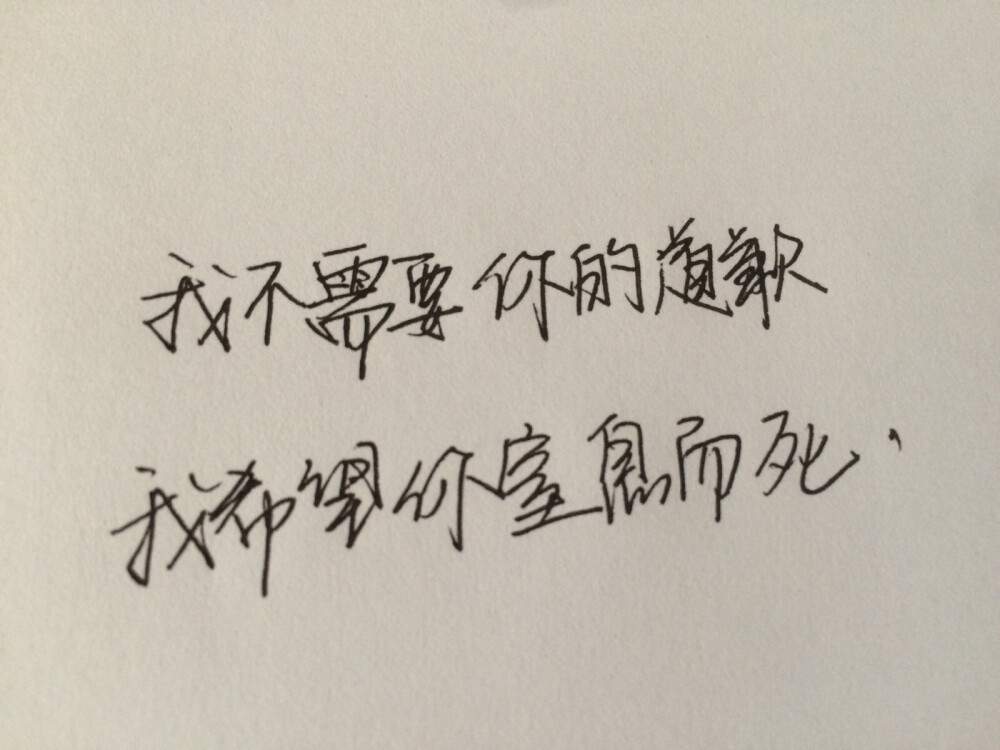 我不需要你的道歉
我希望你窒息而死.